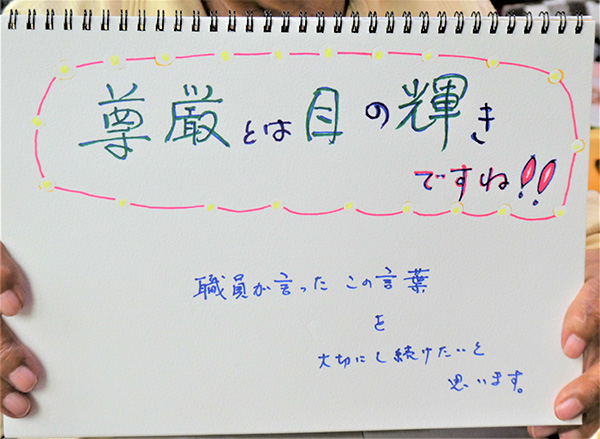 尊厳とは目の輝き
ですね!!
職員が言ったこの言葉
を
大切にし続けたいと
思います。